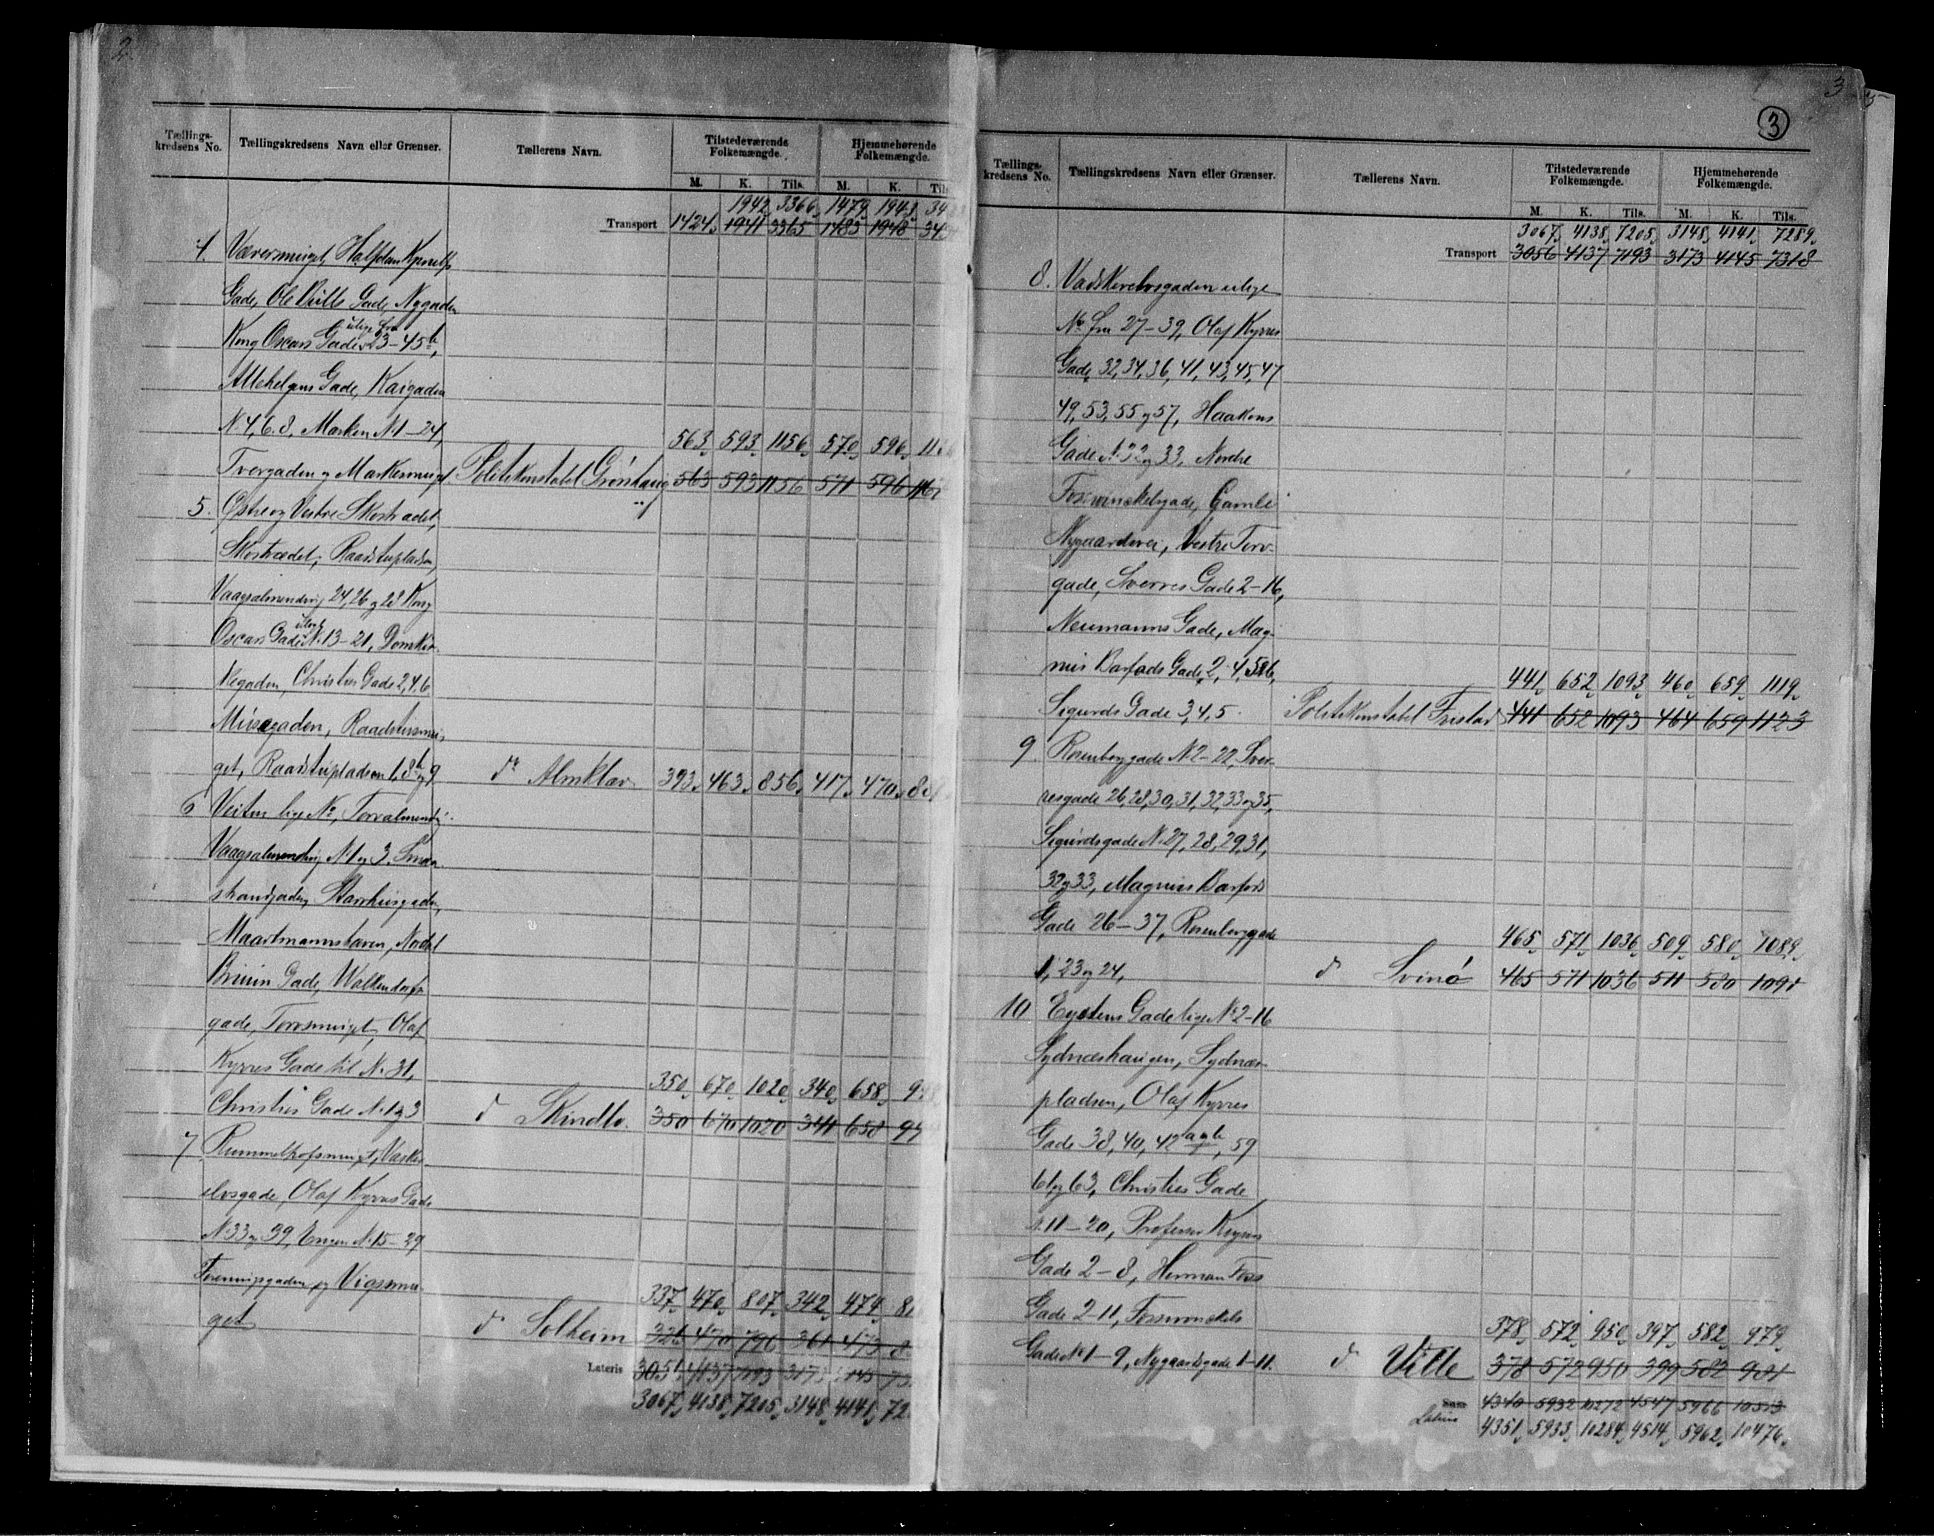 2.
Tællings-
kredsens No.
Tællingskredsens Navn eller Grænser.
Tællerens Navn.
Tilstedeværende
Folkemængde.
Hjemmehørende
Folkemængde.
M. K. Tils. M. K. Tils.
1942 3366 1479 1943
Transport 1424 1941 3365 1483 1948
4. Veversmuget, Halfdan Kjerulfs
Gade, Ole Bulls Gade, Nygaden
ulige fra
Kong Oscars Gade 23-45b,
Allehelgens Gade, Kaigaden
N. 4, 6. 8, Marken N. 1-24,
563 593 1156 570 596
Tvergaden og Markesmuget Politikonstabel
563 593 1156 571 596
5. Østre og Vestre Skostrædet,
Skostrædet, Raadstupladsen,
Vaagsalmending 24, 26 og 28 Kong
ulige
Oscars Gade N. 13-21, Domkir-
kegaden, Christies Gade 2, 4, 6
Raadstusmu-
get, Raadstupladsen 1, 8b og 9 do Almklov 393 463 856 417 470
6 Veiten lige No, Torvalmendg
Vaagsalmending N. 1 og 3, Smaa
strandgaden, Starvhusgaden,
Maartmannshaven, Nordal
Bruun Gade, Walkendorfs
gade, Torvsmuget, Olaf
Kyrres Gade til N. 31,
350 670 1020 340 658
Christies Gade N. 1 og 3 do
350 670 1020 341 658
7 Rummelhofsmuget, Vasker-
elvsgade, Olaf Kyrres Gade
N. 33 og 39, Engen N. 15-29
Foreningsgaden og Vigsmu-
337 470 807 342 479
get do Solheim
326 470 796 361 473
Lateris
4137 7193 3173 4145
3067 4138 7205 3148 4141
3
3
Tællings-
kredsens No.
Tællingskredsens Navn eller Grænser.
Tællerens Navn.
Tilstedeværende
Folkemængde.
Hjemmehørende
Folkemængde.
M. K. Tils. M. K. Tils.
3067 4138 7205 3148 4141 7289
Transport 3056 4137 7193 3173 4145 7318
8. Vaskerelvsgaden ulige
No fra 27-39, Olaf Kyrres
Gade, 32, 34, 36, 41, 43, 45, 47
49, 53, 55 og 57, Haakons
Gade N. 32 og 33, Nordre
Fosswinckelsgade, Gamle
Nygaardsvei, Vestre Torv-
gade, Sverres Gade 2-16,
Neumanns Gade, Mag-
nus Barfods Gade, 2, 4, 5 og 6,
441 652 1093 460 659 1119
Sigurds Gade 3, 4, 5. Politikonstabel Fristad
441 652 1093 464 659 1123
9. Rosenberggade N. 2-22, Sver-
resgade 26, 28, 30, 31, 32, 33 og 35,
Sigurdsgade N. 27, 28, 29, 31,
32 og 33, Magnus Barfods
Gade 26-37, Rosenberggade
465 571 1036 509 580 1089
1, 23 og 24, do Svinø
465 571 1036 511 580 1091
10 Eystens Gade lige No 2-16
Sydnæshaugen, Sydnæs-
pladsen, Olaf Kyrres
Gade 38, 40, 42 a og b, 59
61 og 63, Christies Gade
N. 11-20, Professor Keysers
Gade 2-8, Herman Foss
Gade 2-11, Fosswinckels
378 572 950 397 582 979
Gade No 1-9, Nygaardsgade 1-11. do Ville
378 572 950 399 582 981
Sum 4340 5932 10272 4547 5966 10513
Lateris
4351 5933 10284 4514 5962 10476